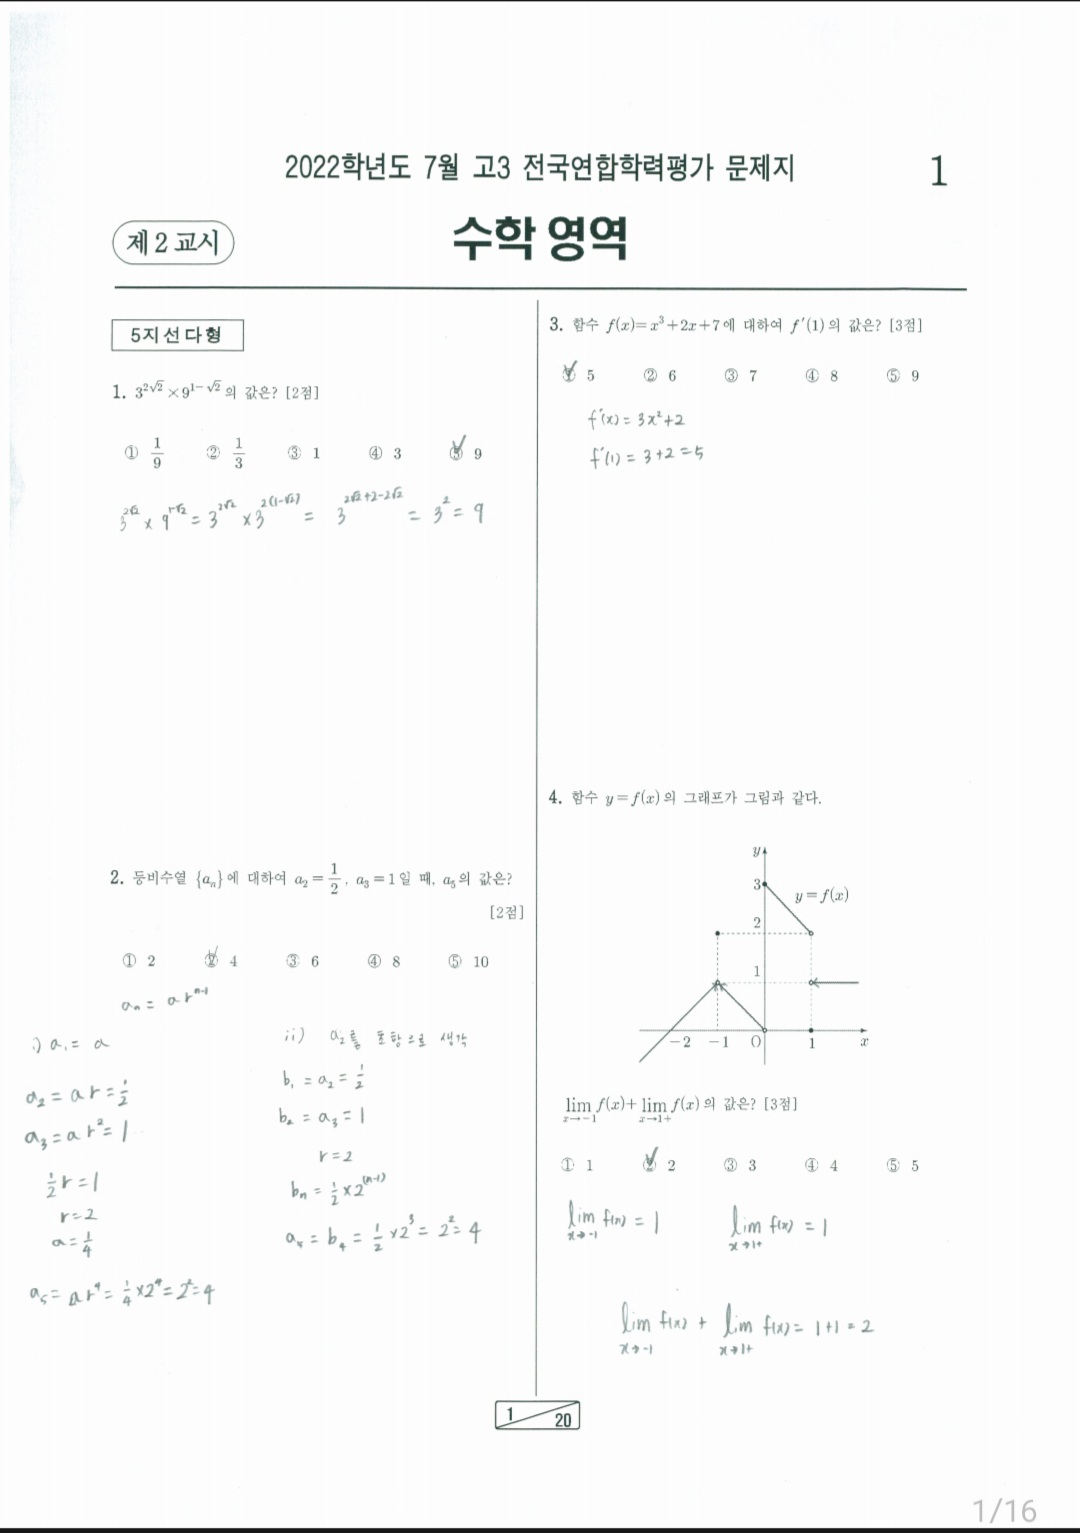 2022학년도 7월 고3 전국연합학력평가 문제지
1
제 2 교시
수학 영역
5지선다형
1. 3^{2√2} × 9^{1-√2} 의 값은? [2점]
① 1/9 ② 1/3 ③ 1 ④ 3 ⑤ 9
3^{2√2} × 9^{1-√2} = 3^{2√2} × 3^{2(1-√2)} = 3^{2√2+2-2√2} = 3^2 = 9
2. 등비수열 {a_n}에 대하여 a_2 = 1/2, a_3 = 1일 때, a_5의 값은?
[2점]
① 2 ② 4 ③ 6 ④ 8 ⑤ 10
a_n = ar^{n-1}
i) a_1 = a
a_2 = ar = 1/2
a_3 = ar^2 = 1
1/2 r = 1
r = 2
a = 1/4
a_5 = ar^4 = 1/4 × 2^4 = 2^2 = 4
ii) a_2를 초항으로 생각
b_1 = a_2 = 1/2
b_2 = a_3 = 1
r = 2
b_n = 1/2 × 2^{(n-1)}
a_5 = b_4 = 1/2 × 2^3 = 2^2 = 4
3. 함수 f(x) = x^3 + 2x + 7에 대하여 f′(1)의 값은? [3점]
① 5 ② 6 ③ 7 ④ 8 ⑤ 9
f′(x) = 3x^2 + 2
f′(1) = 3 + 2 = 5
4. 함수 y = f(x)의 그래프가 그림과 같다.
y
3
y = f(x)
2
1
-2 -1 O 1 x
lim_{x→-1} f(x) + lim_{x→1+} f(x)의 값은? [3점]
① 1 ② 2 ③ 3 ④ 4 ⑤ 5
lim_{x→-1} f(x) = 1 lim_{x→1+} f(x) = 1
lim_{x→-1} f(x) + lim_{x→1+} f(x) = 1+1 = 2
1 20
1/16